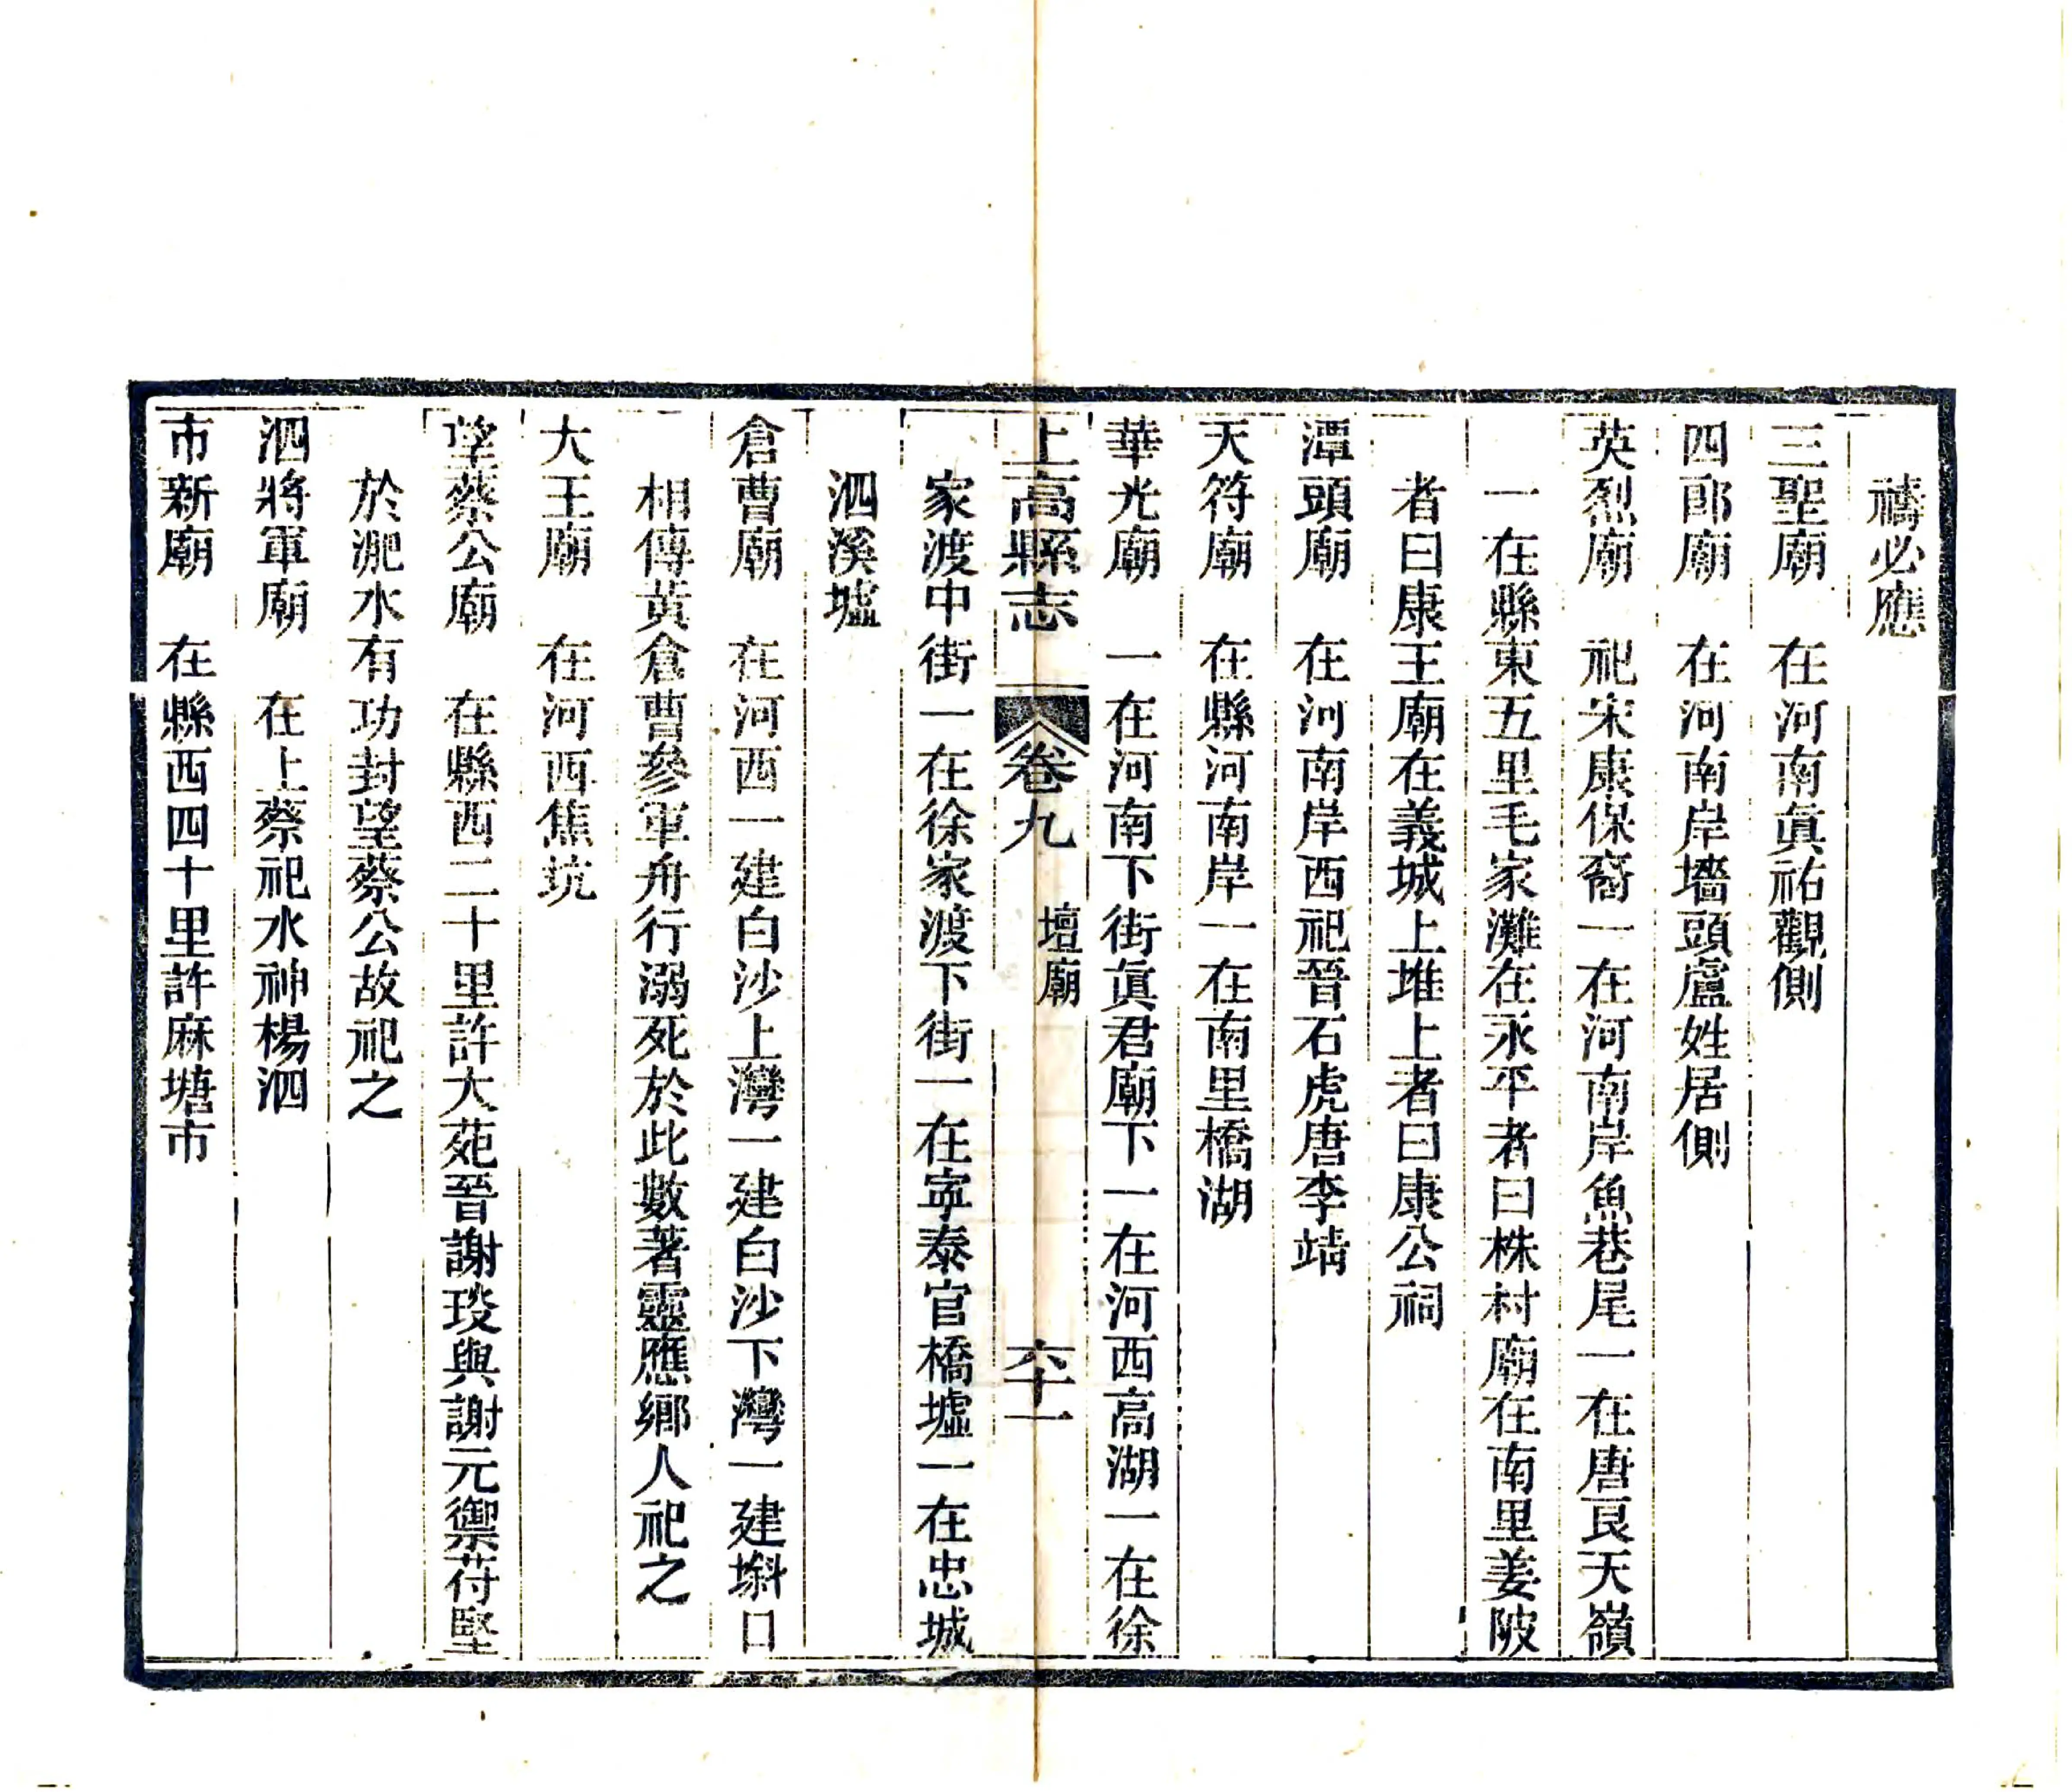 禱必應
三聖廟　在河南眞祐觀側
四郎廟　在河南岸墻頭盧姓居側
英烈廟　祀宋康保裔一在河南岸魚巷尾一在唐良天嶺
一在縣東五里毛家灘在永平者曰株村廟在南里姜陂
者曰康王廟在義城上堆上者曰康公祠
潭頭廟　在河南岸西祀晉石虎唐李靖
天符廟　在縣河南岸一在南里橋湖
華光廟　一在河南下街眞君廟下一在河西高湖一在徐
上高縣志　卷九　壇廟　六十一
家渡中街一在徐家渡下街一在寕泰官橋墟一在忠城
泗溪墟
倉曹廟　在河西一建白沙上灣一建白沙下灣一建㙤口
相傳黃倉曹參軍舟行溺死於此數著靈應鄉人祀之
大王廟　在河西焦坑
望蔡公廟　在縣西二十里許大苑晉謝琰與謝元禦苻堅
於淝水有功封望蔡公故祀之
泗將軍廟　在上蔡祀水神楊泗
市新廟　在縣西四十里許麻塘市